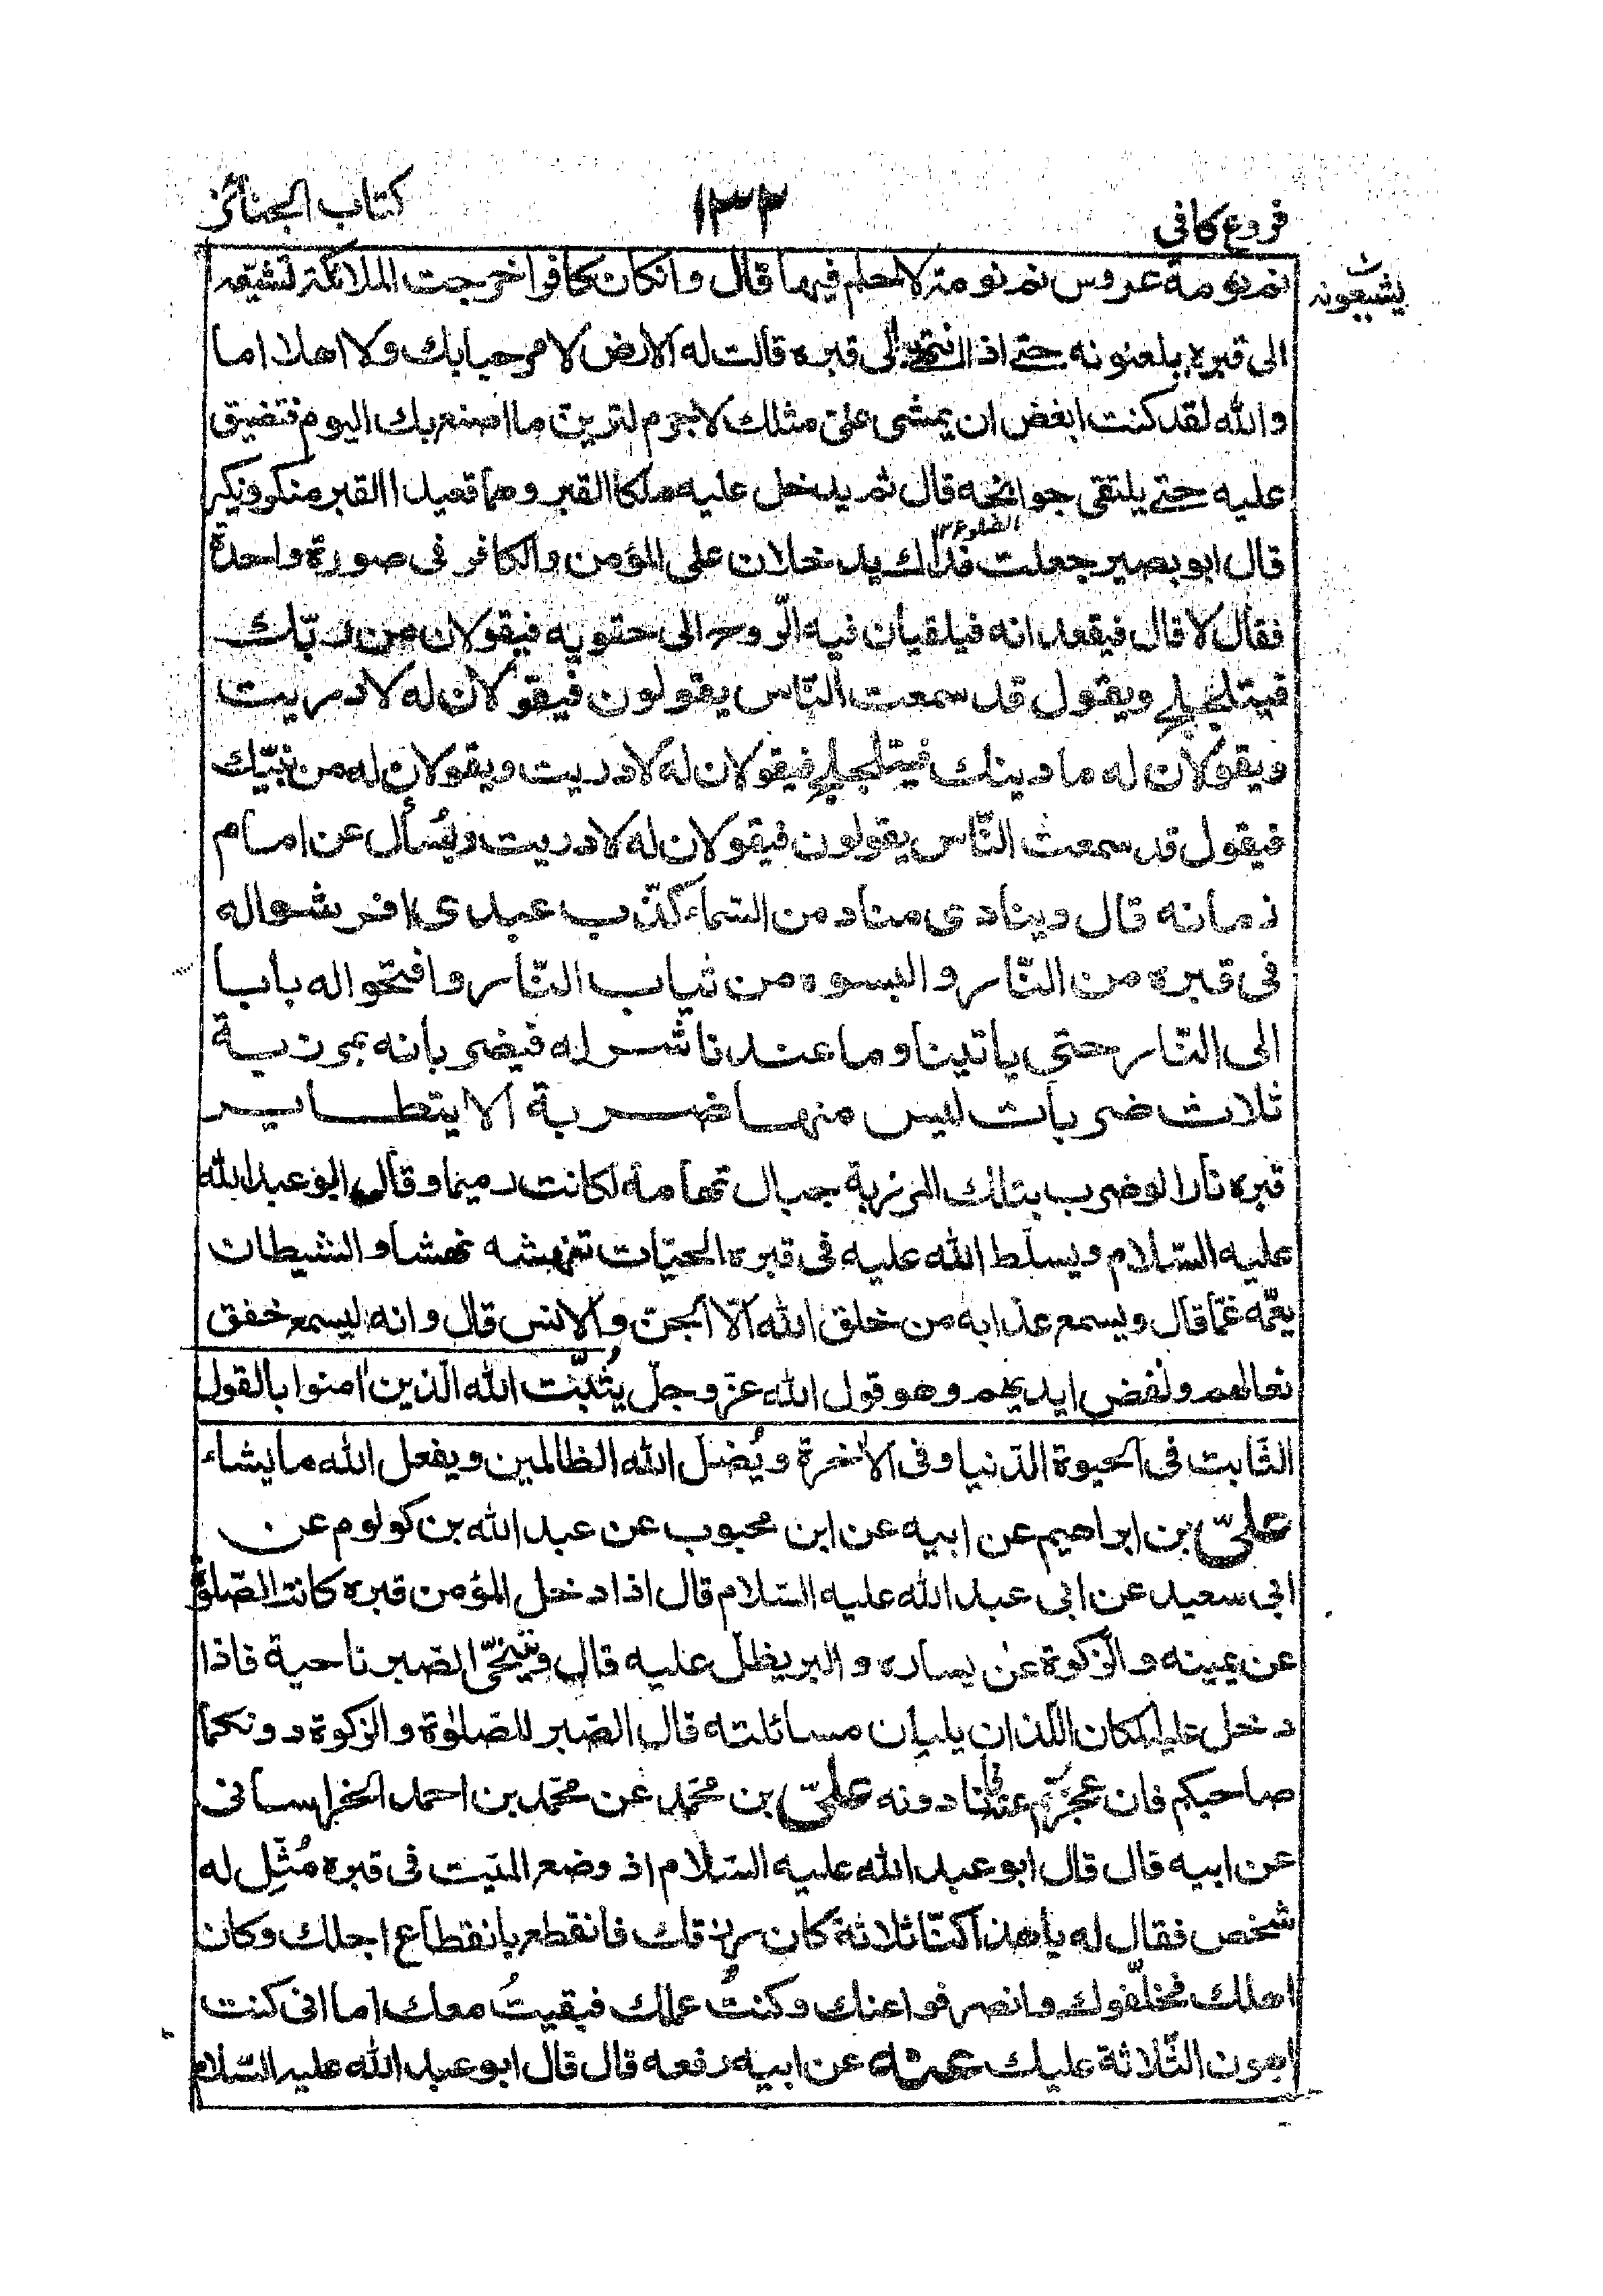 فروع كافي
١٣٢
كتاب الجنائز
نم نومة عروس نم نومة لا حلم فيها قال وانكان كافرا خرجت الملائكة تشيعه
يشيعونه
الى قبره يلعنونه حتى اذا انتهى الى قبره قالت له الارض لا مرحبا بك ولا اهلا اما
والله لقد كنت ابغض ان يمشى علىّ مثلك لا جرم لترين ما اصنع بك اليوم فتضيق
عليه حتى يلتقى جوانحه قال ثم يدخل عليه ملكا القبر وهما قعيدا القبر منكر ونكير
الضلوع ١٢
قال ابو بصير جعلت فداك يدخلان على المؤمن والكافر فى صورة واحدة
فقال لا قال فيقعدانه فيلقيان فيه الرّوح الى حقويه فيقولان من ربّك
فيتلجلج ويقول قد سمعت النّاس يقولون فيقولان له لا دريت
ويقولان له ما دينك فيتلجلج فيقولان له لا دريت ويقولان له من نبيّك
فيقول قد سمعت النّاس يقولون فيقولان له لا دريت ويُسأل عن امام
زمانه قال وينادى مناد من السّماء كذّب عبدى افرشوا له
فى قبره من النّار والبسوه من ثياب النّار وافتحوا له بابا
الى النّار حتى ياتينا وما عندنا شرّ له فيضربانه بمرزبة
ثلاث ضربات ليس منها ضربة الا يتطاير
قبره نارا لو ضرب بتلك المرزبة جبال تهامة لكانت رميما وقال ابو عبد الله
عليه السّلام ويسلّط الله عليه فى قبره الحيّات تنهشه نهشا والشيطان
يغمّه غمّا قال ويسمع عذابه من خلق الله الّا الجنّ والانس قال وانه ليسمع خفق
نعالهم ونفض ايديهم وهو قول الله عزّ وجلّ يُثَبِّت الله الّذين امنوا بالقول
الثّابت فى الحيوة الدّنيا وفى الاخرة ويُضلّ الله الظالمين ويفعل الله ما يشاء
علىّ بن ابراهيم عن ابيه عن ابن محبوب عن عبد الله بن كولوم عن
ابى سعيد عن ابى عبد الله عليه السّلام قال اذا دخل المؤمن قبره كانت الصّلوة
عن يمينه والزّكوة عن يساره والبر يظلّ عليه قال ويتنحّى الصّبر ناحية فاذا
دخل عليه الملكان اللّذان يليان مسائلته قال الصّبر للصّلوٰة والزكوة دونكما
صاحبكم فان عجزتم عنه فانا دونه علىّ بن محمّد عن محمّد بن احمد الخراسانى
عن ابيه قال قال ابو عبد الله عليه السّلام اذ وضع الميّت فى قبره مُثّل له
شخص فقال له يا هذا كنّا ثلاثة كان رزقك فانقطع بانقطاع اجلك وكان
اهلك فخلّفوك وانصرفوا عنك وكنتُ عملك فبقيتُ معك اما انى كنت
اهون الثّلاثة عليك عنه عن ابيه رفعه قال قال ابو عبد الله عليه السّلام